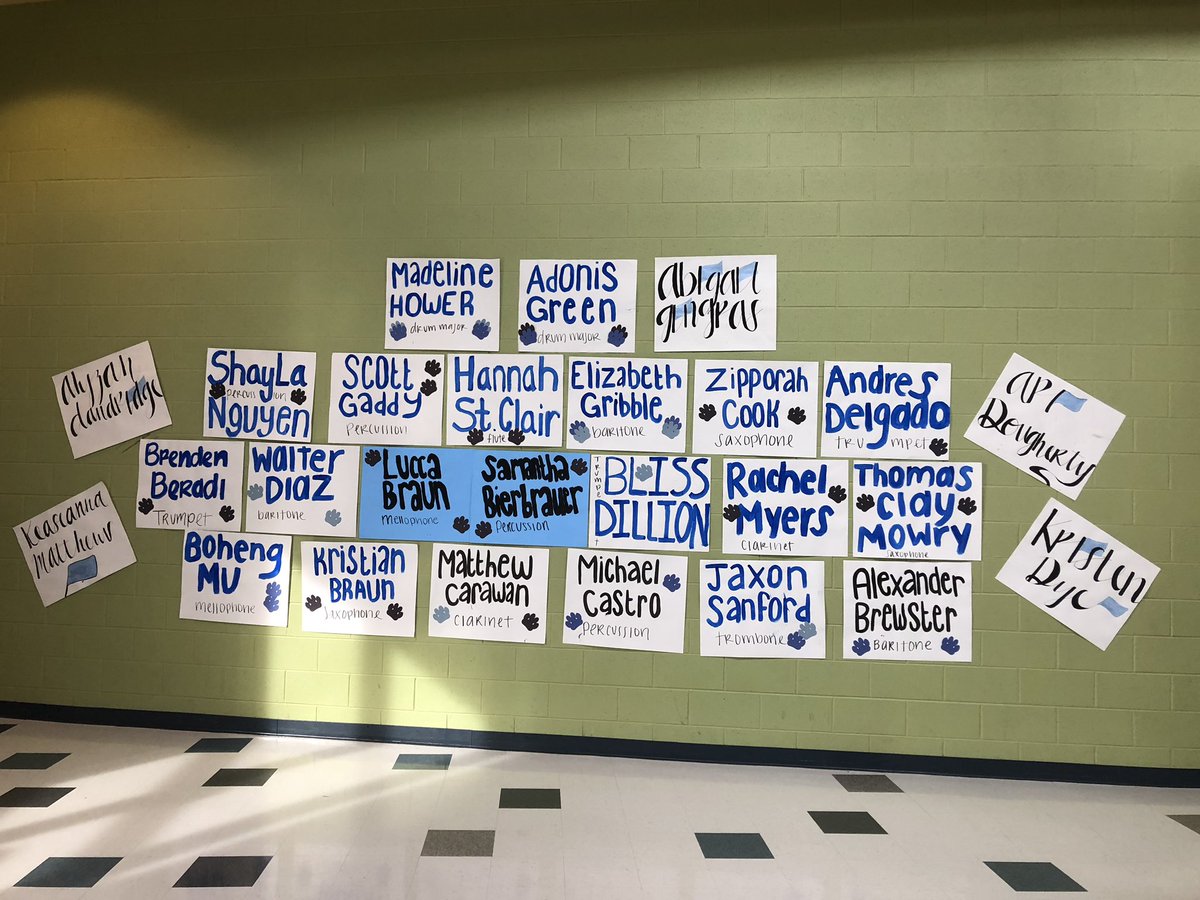 Madeline
HOWER
drum major
ADONIS
Green
drum major
Abigail
gingras
Alyjah
dandridge
ShayLa
percussion
Nguyen
SCOTT
Gaddy
percussion
Hannah
St. Clair
flute
Elizabeth
Gribble
baritone
Zipporah
COOK
saxophone
Andres
Delgado
trumpet
Deugherty
Brenden
Beradi
Trumpet
Walter
DIAZ
baritone
Lucca
Braun
mellophone
Samantha
Bierbrauer
Percussion
Trumpet
BLISS
DILLION
Rachel
Myers
Clarinet
Thomas
Clay
Mowry
Saxophone
Keascanna
Matthew
Boheng
MU
mellophone
Kristian
BRAUN
Saxophone
Matthew
Carawan
Clarinet
Michael
Castro
Percussion
Jaxon
Sanford
trombone
Alexander
Brewster
Baritone
Kerstyn
Dye